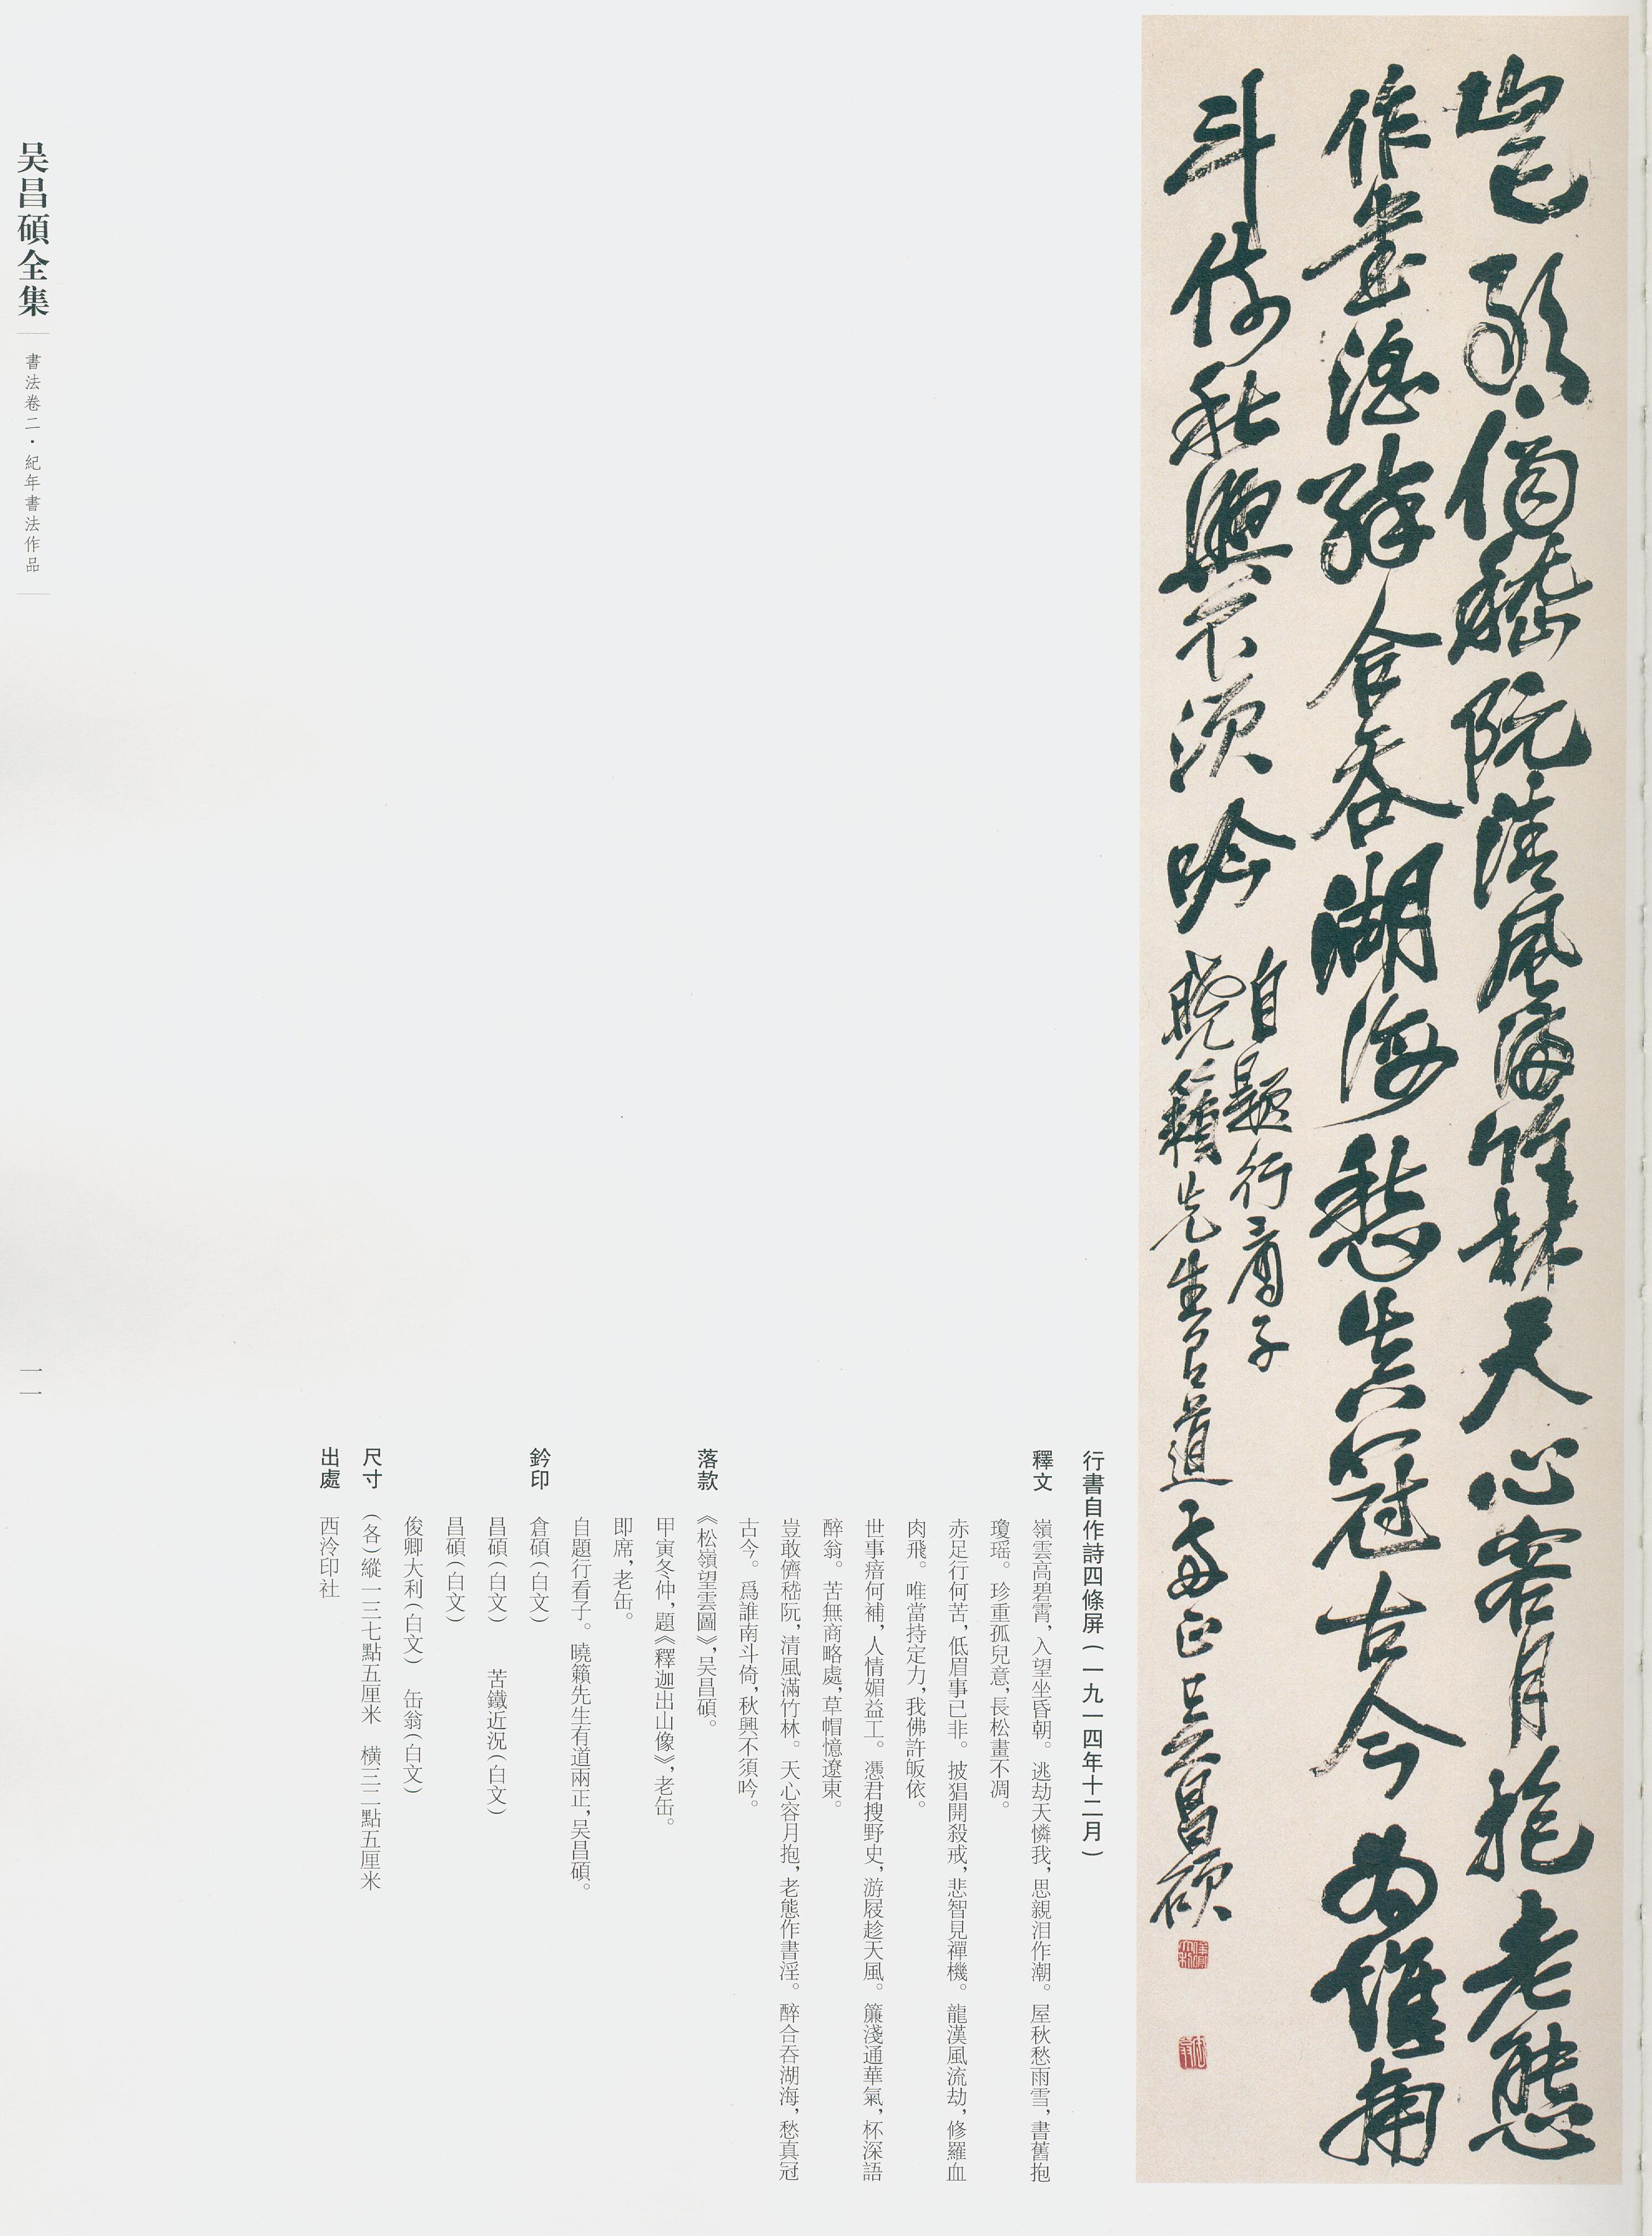 豈敢儕嵇阮清風滿竹林天心容月抱老態
作書淫醉合吞湖海愁真冠古今為誰南
斗倚秋興不須吟
自題行看子
曉籟先生有道兩正吴昌碩
行書自作詩四條屏(一九一四年十二月)
釋文 嶺雲高碧霄,入望坐昏朝。逃劫天憐我,思親泪作潮。屋秋愁雨雪,書舊抱
瓊瑶。珍重孤兒意,長松畫不凋。
赤足行何苦,低眉事已非。披猖開殺戒,悲智見禪機。龍漢風流劫,修羅血
肉飛。唯當持定力,我佛許皈依。
世事瘖何補,人情媚益工。憑君搜野史,游屐趁天風。簾淺通華氣,杯深語
醉翁。苦無商略處,草帽憶遼東。
豈敢儕嵇阮,清風滿竹林。天心容月抱,老態作書淫。醉合吞湖海,愁真冠
古今。爲誰南斗倚,秋興不須吟。
落款 《松嶺望雲圖》,吴昌碩。
甲寅冬仲,題《釋迦出山像》,老缶。
即席,老缶。
自題行看子。曉籟先生有道兩正,吴昌碩。
鈐印 倉碩(白文)
昌碩(白文) 苦鐵近況(白文)
昌碩(白文)
俊卿大利(白文) 缶翁(白文)
尺寸 (各)縱一三七點五厘米 橫三二點五厘米
出處 西泠印社
吴昌碩全集
書法卷二·紀年書法作品
一一